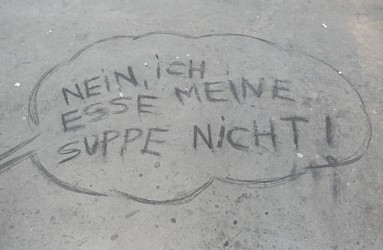 NEiN, iCH
ESSE MEiNE
SUPPE NiCHT!